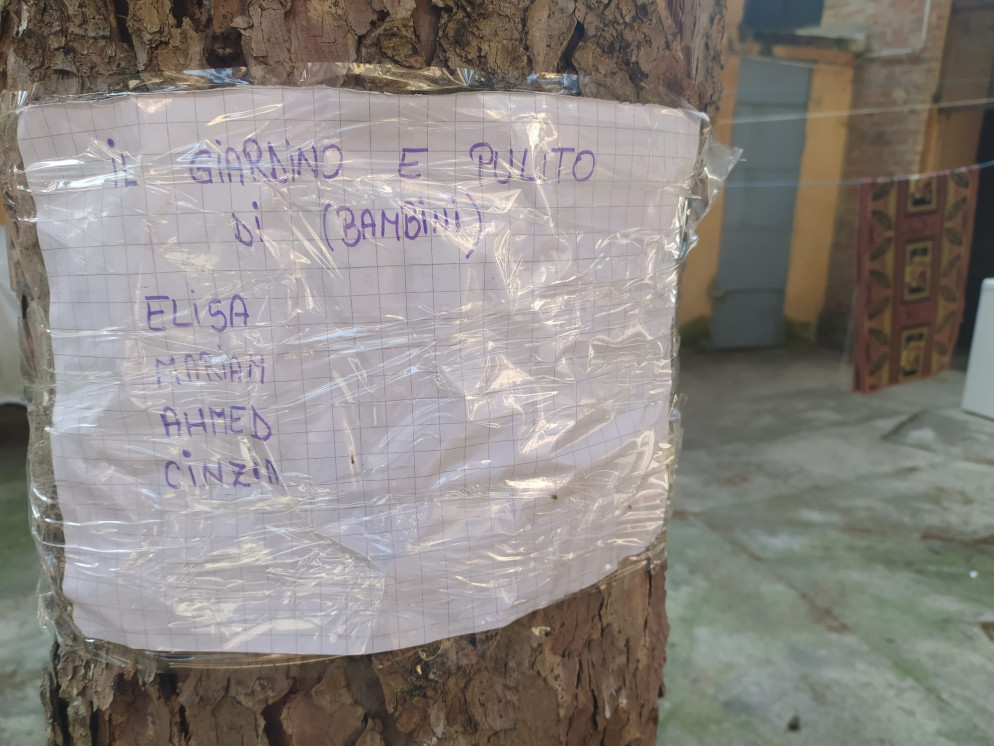 iL GiARDiNO E PULITO
Di (BAMBiNi)
ELiSA
MARIAM
AHMED
CiNZIA